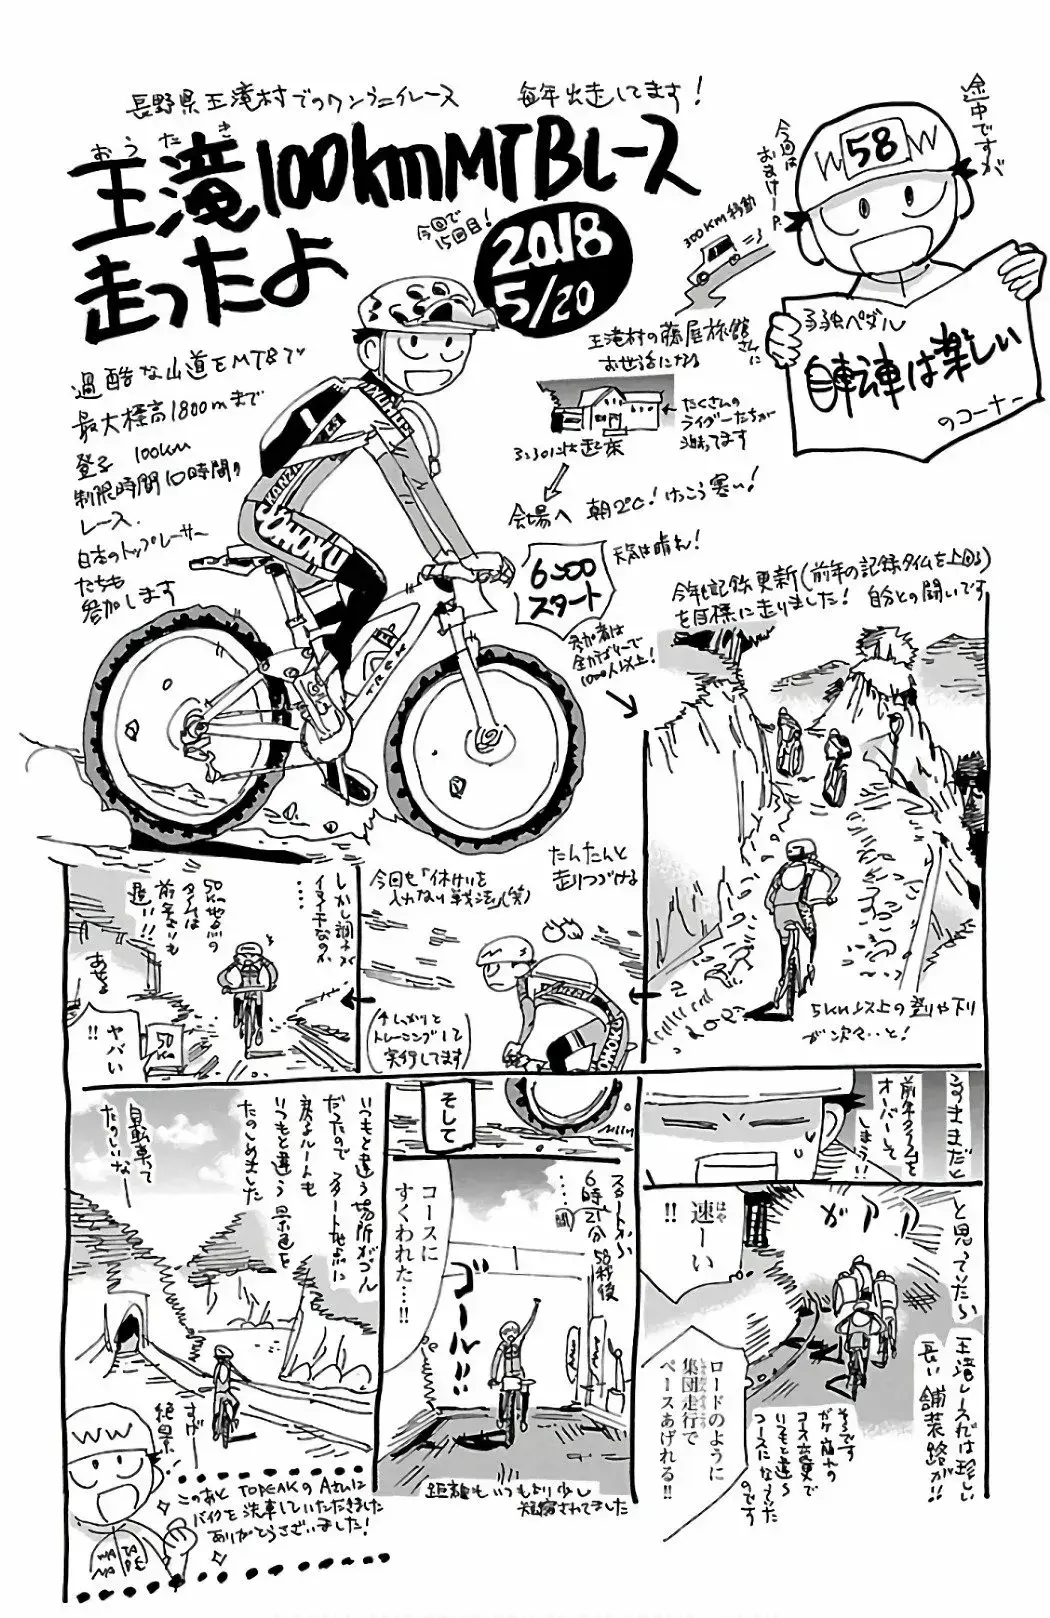 途中ですが
今回は
おまけーP.
WW58WW
弱虫ペダル
自転車は楽しい
のコーナー
長野県王滝村でのワンデイレース
毎年出走してます!
おうたき
王滝100kmMTBレース
走ったよ
今回で
15回目!
2018
5/20
300KM移動
過酷な山道をMTBで
最大標高1800mまで
登る 100km
制限時間10時間の
レース.
日本のトップレーサー
たちも
参加します
王滝村の藤屋旅館
さんに
お世話になる
たくさんの
ライダーたちが
泊ってます
3:30に起床
会場へ 朝2℃!けっこう寒い!
6:00
スタート
天気は晴れ!
参加者は
全カテゴリーで
1000人以上!
KANZAKI
SOHOKU
TREK
今年も記録更新(前年の記録タイムを上回る)
を目標に走りました! 自分との闘いです
5km以上の登りや下り
が次々・・と!
たんたんと
走りつづける
今回も「休けいを
入れない戦法」(笑)
(↑しっかりと
トレーニングして
実行してます)
SOHOKU
しかし調子が
イマイチなのか
…
50km地点の
タイムは
前年よりも
遅い!!
あせる
ヤバい
!!
50
km
このままだと
前年タイムを
オーバーして
しまう!!
と思っていたら
王滝レースでは珍しい
長い舗装路が!!
ガアアア
速ーい
はや
!!
ロードのように
集団走行で
しゅうだんそうこう
ペースあげれる!!
そうです
ガケ崩れの
コース変更で
いつもと違う
コースになっていた
のです
そして
スタートから
6時間21分58秒後
…
ゴール!!
コースに
すくわれた…!!
距離もいつもより少し
短縮されてました
いつもと違う場所がゴール
だったので スタート地点に
戻るルートも
いつもと違う景色を
たのしめました
自転車て
たのしいなー
すげー
絶景
WW
このあと TOPEAKのAさんに
バイクを洗車していただきました
ありがとうございました!